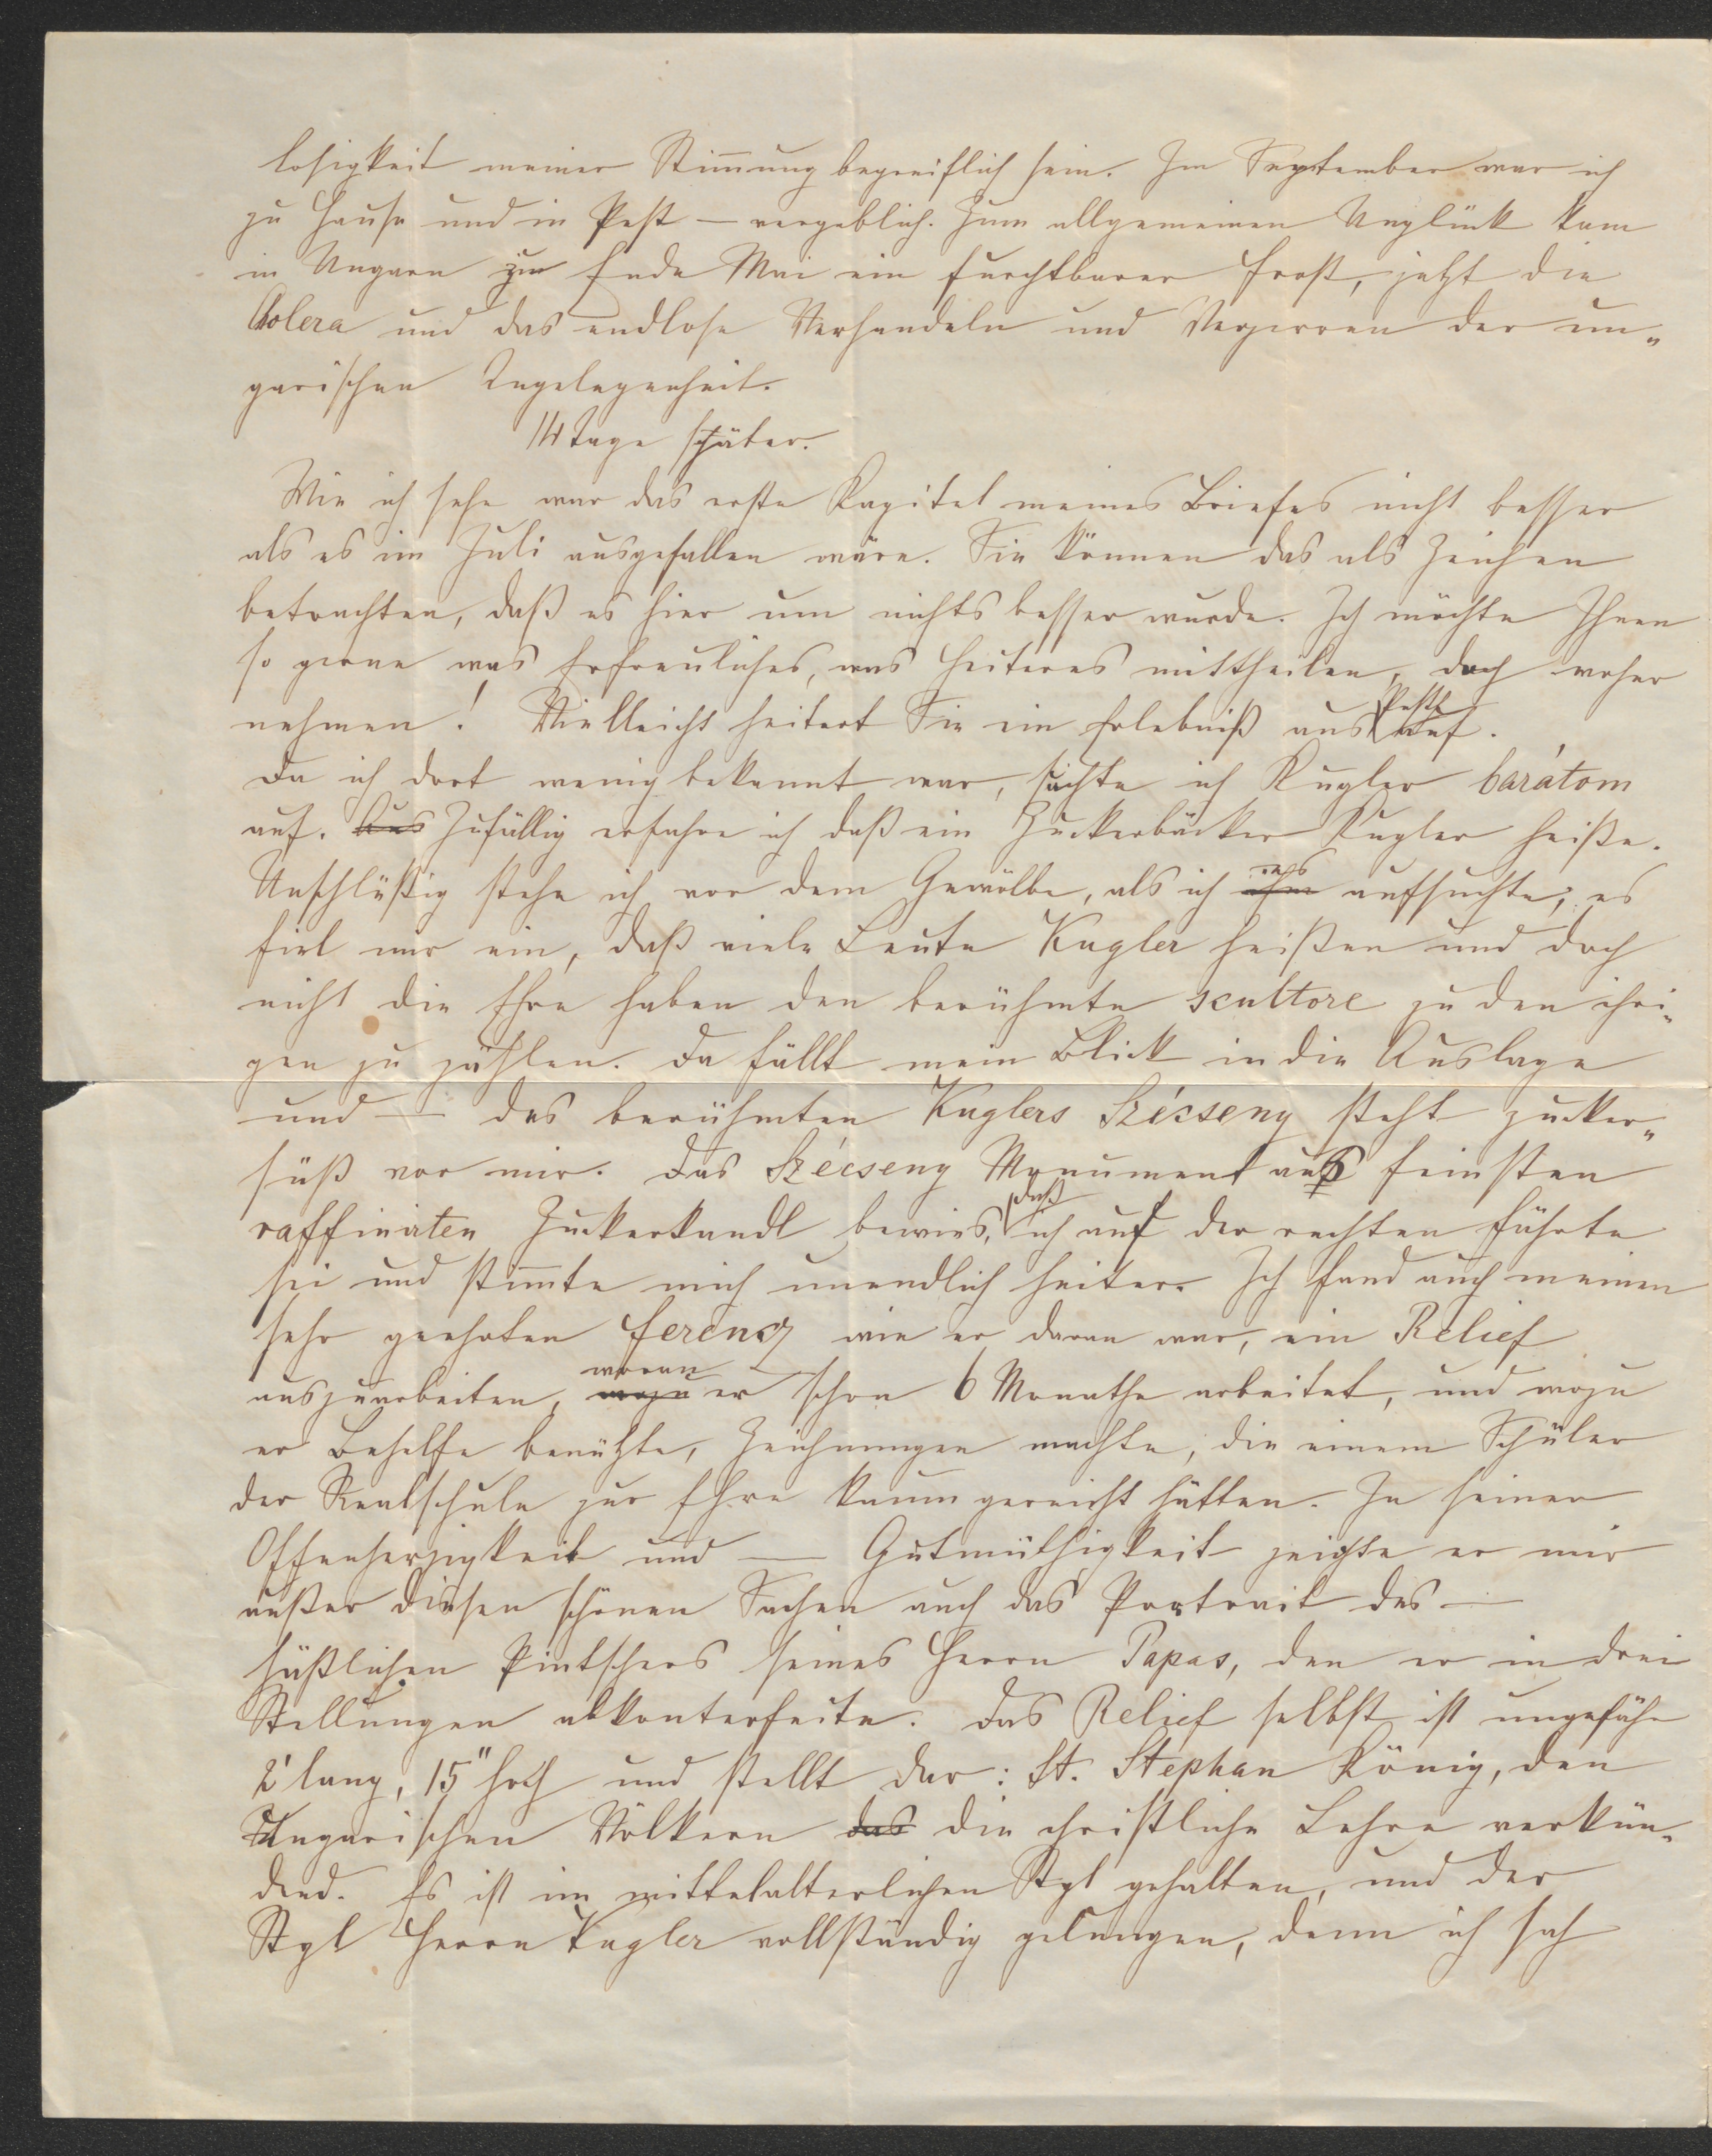 losigkeit meiner Stimmung begreiflich sein. Im September war ich
zu Hause und in Pest — vergeblich. Zum allgemeinen Unglück kam
in Ungarn zur Ende Mai ein furchtbarer Frost, jetzt die
Colera und das endlose Verhandeln und Verzerren der un„
garischen Angelegenheit.
14 Tage später.
Wie ich sehe war das erste Kapitel meines Briefes nicht besser
als es im Juli ausgefallen wäre. Sie können das als Zeichen
betrachten, daß es hier um nichts besser wurde. Ich möchte Ihnen
so gerne was Erfreuliches, was Heiteres mittheilen, doch woher
nehmen! Vielleicht heitert Sie ein Erlebniß aus Pesth auf.
Da ich dort wenig bekannt war, suchte ich Kugler barátom
auf. Aus Zufällig erfahre ich daß ein Zuckerbäcker Kugler heiße.
Unschlüßig stehe ich vor dem Gewölbe, als ich ihn es aufsuchte; es
fiel mir ein, daß viele Leute Kugler heißen und doch
nicht die Ehre haben den berühmte scultore zu den ihri„
gen zu zählen. Da fällt mein Blick in die Auslage
und — des berühmten Kuglers Szécseny steht zucker„
süß vor mir. Das Szécseny Monument aus feinsten
raffinirten Zuckerkandl bewies, daß ich auf der rechten Fährte
sei und stimmte mich unendlich heiter. Ich fand auch meinen
sehr geehrten Ferencz wie er daran war, ein Relief
auszuarbeiten, wozu woran er schon 6 Monathe arbeitet, und wozu
er Behelfe benützte, Zeichnungen machte, die einem Schüler
der Realschule zur Ehre kaum gereicht hätten. In seiner
Offenherzigkeit und — Gutmüthigkeit zeigte er mir
außer diesen schönen Sachen auch das Portrait des —
häßlichen Pintschers seines Herrn Papas, den er in drei
Stellungen abkonterfeite. Das Relief selbst ist ungefähr
2' lang, 15" hoch und stellt dar: St. Stephan König, den
Ungarischen Völkern das die christliche Lehre verkün„
dend. Es ist im mittelalterlichen Styl gehalten, und der
Styl Herrn Kugler vollständig gelungen, denn ich sah